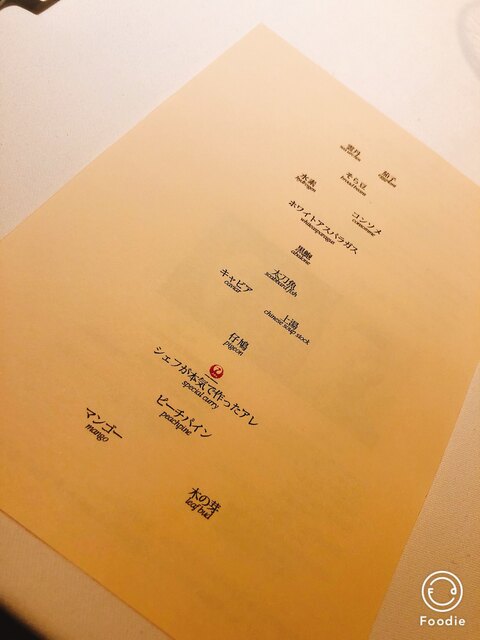 雲丹
sea urchin
茄子
eggplant
そら豆
broad beans
水素
hydrogen
コンソメ
consomme
ホワイトアスパラガス
whiteasparagus
黒鮑
abalone
太刀魚
scabbard fish
キャビア
caviar
上湯
chinese soup stock
仔鳩
pigeon
シェフが本気で作ったアレ
special curry
ピーチパイン
peachpine
マンゴー
mango
木の芽
leaf bud
Foodie